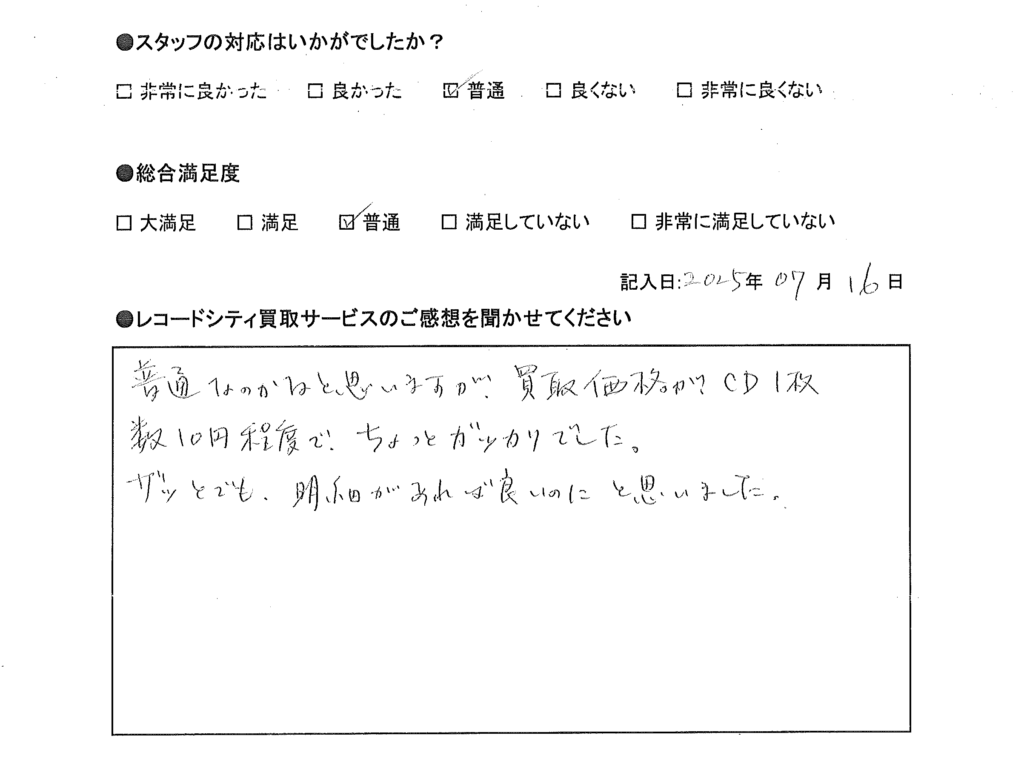 ●スタッフの対応はいかがでしたか？
□ 非常に良かった □ 良かった ☑ 普通 □ 良くない □ 非常に良くない
●総合満足度
□ 大満足 □ 満足 ☑ 普通 □ 満足していない □ 非常に満足していない
記入日:2025年 07月 16日
●レコードシティ買取サービスのご感想を聞かせてください
普通なのかなと思いますが、買取価格が、CD1枚
数10円程度で、ちょっとガッカリでした。
ザッとでも、明細があれば良いのにと思いました。